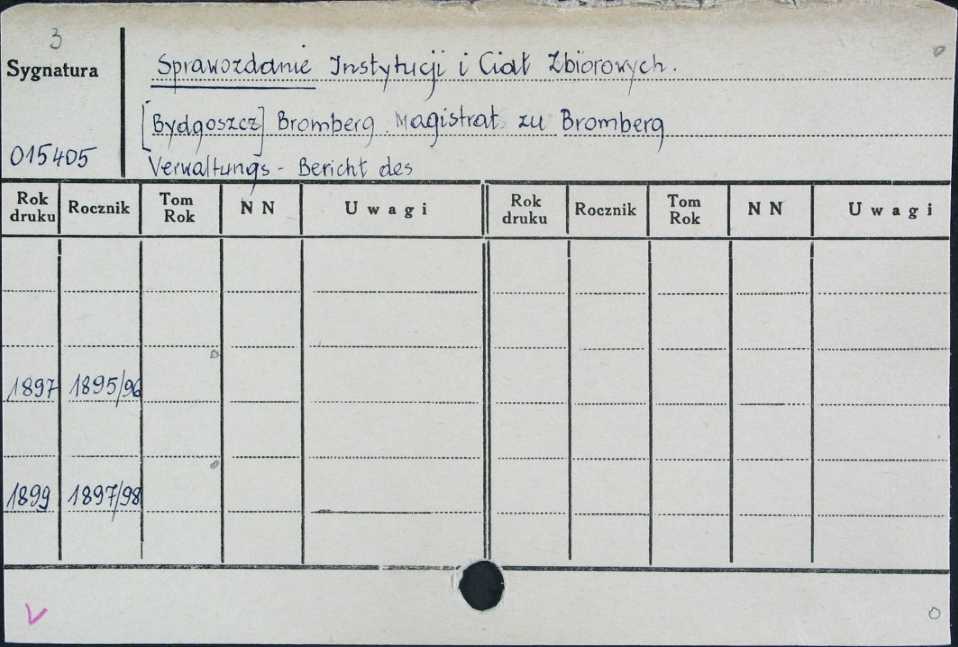 3
Sygnatura
Sprawozdanie Instytucji i Ciał Zbiorowych.
[Bydgoszcz] Bromberg. Magistrat zu Bromberg
015405
Verwaltungs - Bericht des
Rok druku Rocznik Tom Rok N N Uwagi Rok druku Rocznik Tom Rok N N Uwagi
1897 1895/96
1899 1897/98